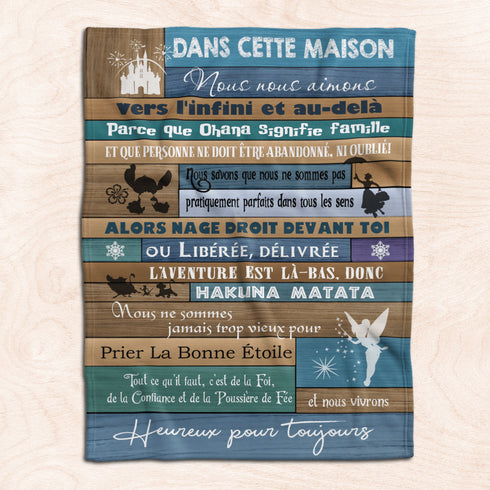 DANS CETTE MAISON
Nous nous aimons
vers l'infini et au-delà
Parce que Ohana Signifie famille
ET QUE PERSONNE NE DOIT ÊTRE ABANDONNÉ, NI OUBLIÉ!
Nous savons que nous ne sommes pas
pratiquement parfaits dans tous les sens
ALORS NAGE DROIT DEVANT TOI
OU LIBÉRÉE, DÉLIVRÉE
L'AVENTURE EST LÀ-BAS, DONC
HAKUNA MATATA
Nous ne sommes
jamais trop vieux pour
Prier La Bonne Étoile
Tout ce qu'il faut, c'est de la Foi,
de la Confiance et de la Poussière de Fée
et nous vivrons
Heureux pour toujours